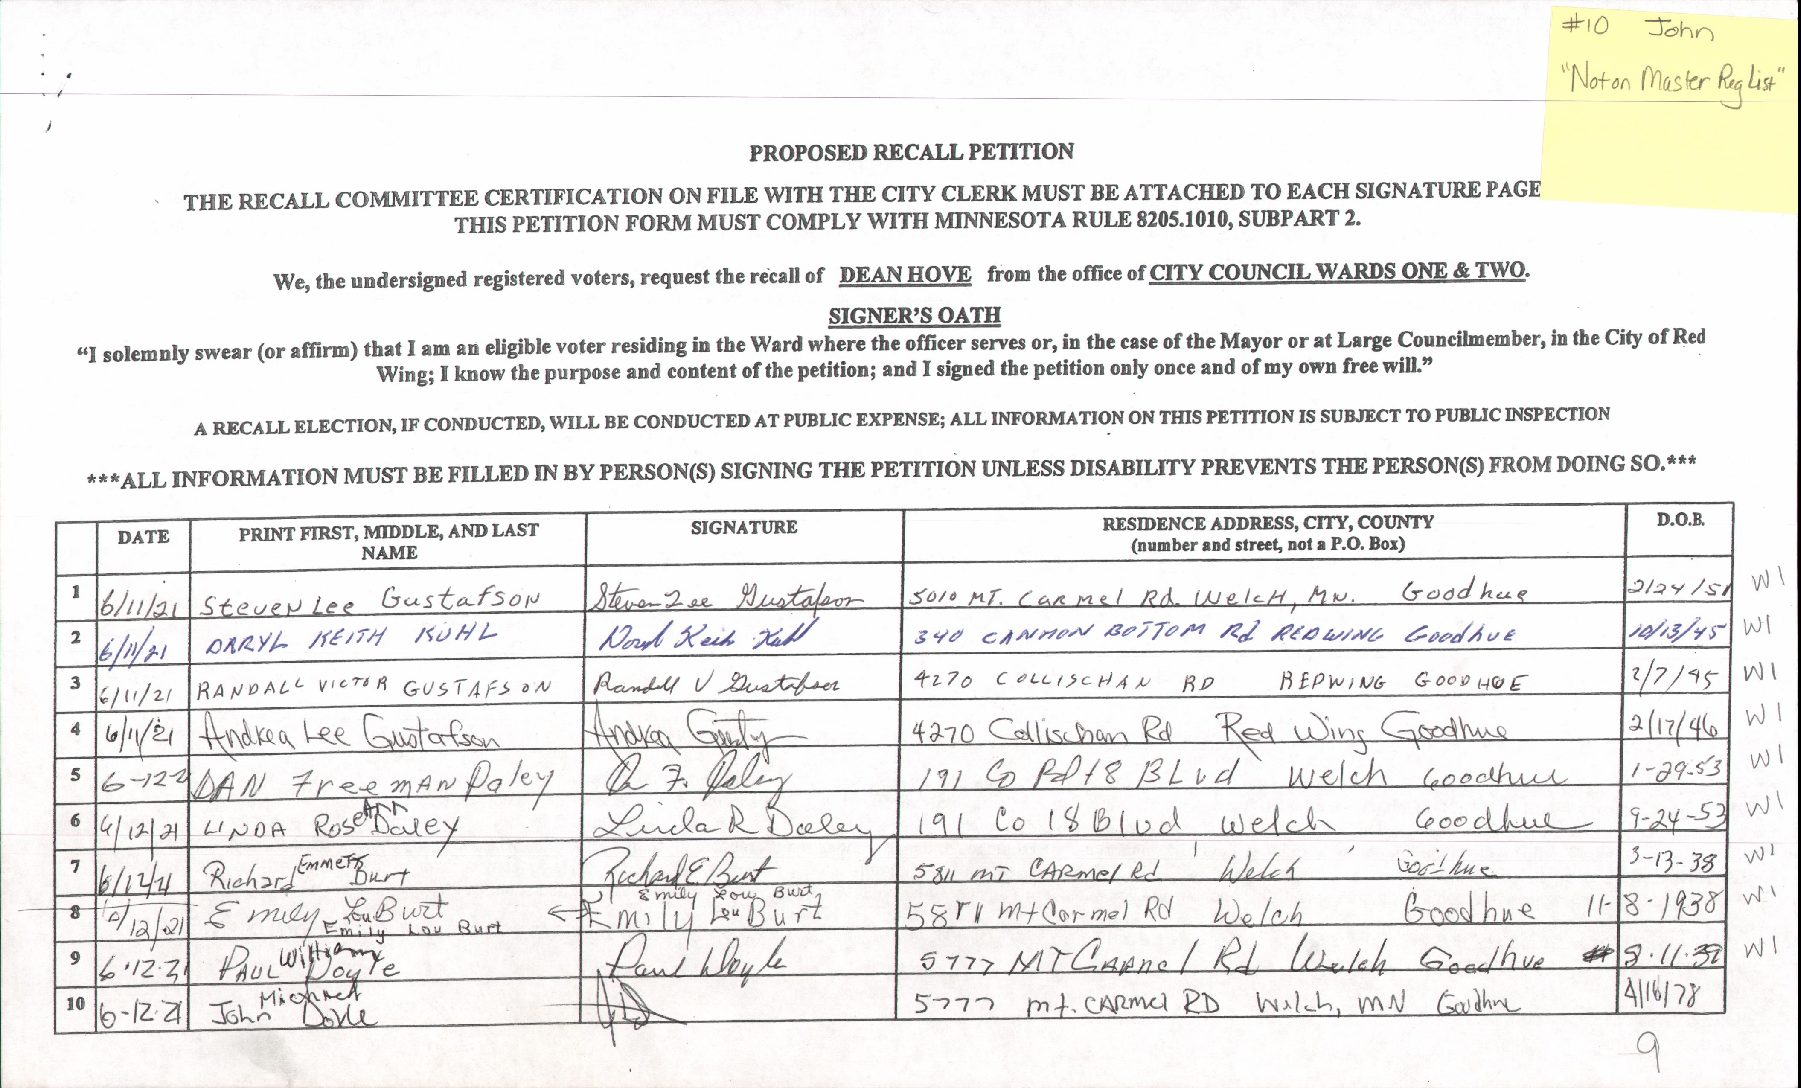 #10 John
"Not on Master Reg List"
PROPOSED RECALL PETITION
THE RECALL COMMITTEE CERTIFICATION ON FILE WITH THE CITY CLERK MUST BE ATTACHED TO EACH SIGNATURE PAGE
THIS PETITION FORM MUST COMPLY WITH MINNESOTA RULE 8205.1010, SUBPART 2.
We, the undersigned registered voters, request the recall of DEAN HOVE from the office of CITY COUNCIL WARDS ONE & TWO.
SIGNER'S OATH
"I solemnly swear (or affirm) that I am an eligible voter residing in the Ward where the officer serves or, in the case of the Mayor or at Large Councilmember, in the City of Red
Wing; I know the purpose and content of the petition; and I signed the petition only once and of my own free will."
A RECALL ELECTION, IF CONDUCTED, WILL BE CONDUCTED AT PUBLIC EXPENSE; ALL INFORMATION ON THIS PETITION IS SUBJECT TO PUBLIC INSPECTION
***ALL INFORMATION MUST BE FILLED IN BY PERSON(S) SIGNING THE PETITION UNLESS DISABILITY PREVENTS THE PERSON(S) FROM DOING SO.***
DATE PRINT FIRST, MIDDLE, AND LAST NAME SIGNATURE RESIDENCE ADDRESS, CITY, COUNTY (number and street, not a P.O. Box) D.O.B.
1 6/11/21 Steven Lee Gustafson Steven Lee Gustafson 5010 MT. Carmel Rd. Welch, MN. Goodhue 2/24/51 W1
2 6/11/21 DARYL KEITH KUHL Keith Kuhl 340 CANNON BOTTOM Rd REDWING Goodhue 10/13/45 W1
3 6/11/21 RANDALL VICTOR GUSTAFSON Randall V Gustafson 4270 COLLISCHAN RD REDWING GOODHUE 2/7/45 W1
4 6/11/21 Andrea Lee Gustafson Andrea 4270 Collischan Rd Red Wing Goodhue 2/17/46 W1
5 6-12-2 DAN Freeman Daley D. F. Daley 191 Co Rd 18 BLvd Welch Goodhue 1-29-53 W1
6 6/12/21 LINDA Rose Ann Daley Linda R Daley 191 Co 18 Blvd Welch Goodhue 9-24-53 W1
7 6/12/21 Richard Emmett Burt Richard E Burt 5811 MT CARMel Rd Welch Goodhue 3-13-38 W1
8 6/12/21 Emily Lou Burt Emily Lou Burt Emily Lou Burt Emily Lou Burt 5811 Mt Carmel Rd Welch Goodhue 11-8-1938 W1
9 6-12-21 PAUL William Doyle Paul Doyle 5777 MT CARMEl Rd Welch Goodhue 8-11-39 W1
10 6-12-21 John Michael Doyle 5777 mt. CARMel RD Welch, MN Goodhue 4/16/78
9